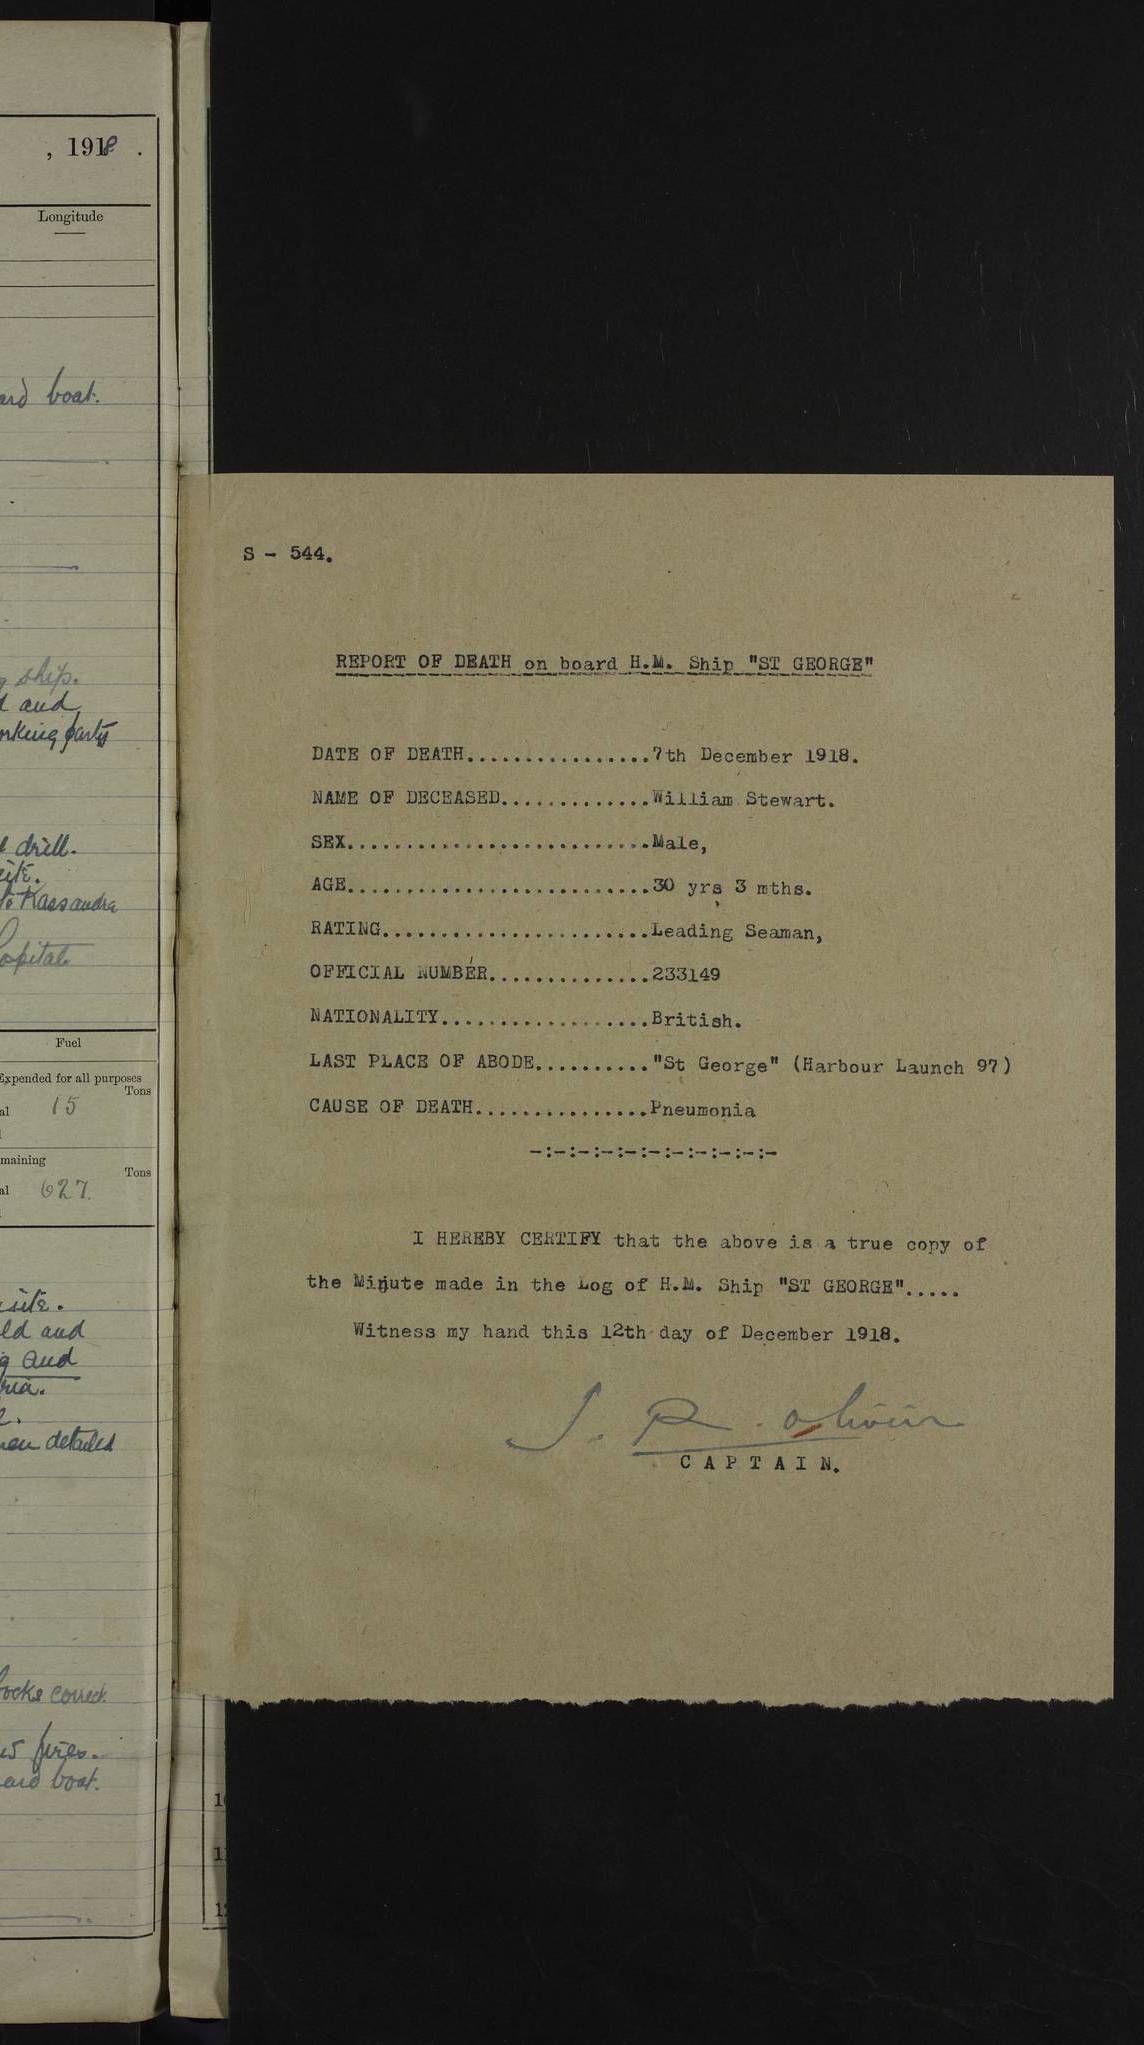 , 1918 .
Longitude
boat.
ship.
and
party
drill.
to Kassandra
Fuel
Expended for all purposes
Tons
15
Tons
627.
site.
and
and
detailed
correct.
fires.
boat.
S - 544.
REPORT OF DEATH on board H.M. Ship "ST GEORGE"
DATE OF DEATH................7th December 1918.
NAME OF DECEASED.............William Stewart.
SEX..........................Male,
AGE..........................30 yrs 3 mths.
RATING.......................Leading Seaman,
OFFICIAL NUMBER..............233149
NATIONALITY..................British.
LAST PLACE OF ABODE.........."St George" (Harbour Launch 97)
CAUSE OF DEATH...............Pneumonia
-:-:-:-:-:-:-:-:-:-:-
I HEREBY CERTIFY that the above is a true copy of
the Minute made in the Log of H.M. Ship "ST GEORGE".....
Witness my hand this 12th day of December 1918.
C A P T A I N.